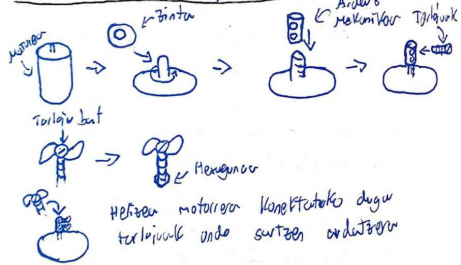 Motorea
Zinta
Ardatz
Mekanikoa
Torlojuak
Torloju bat
Hexagonoa
Helizea motorrera konektatuko dugu
torlojuak ondo sartzen ardatzera